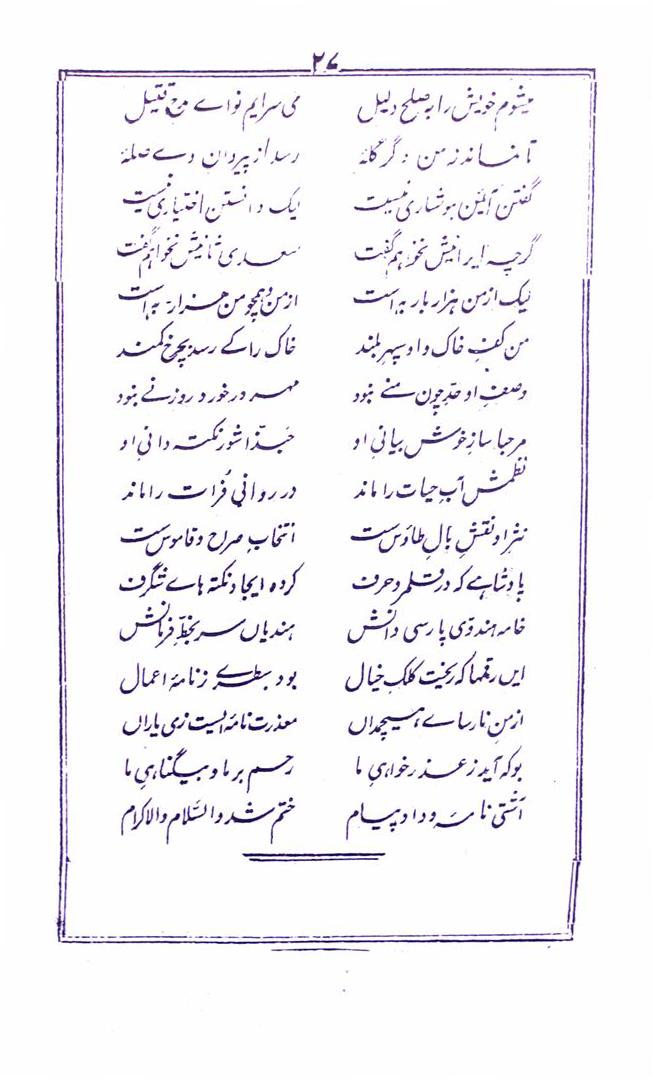 ۲۷
میشوم خویش را به صلح دلیل می سرایم نواے مدح قتیل
تا نماند ز من دگر گلۂ رسد از پیروان وے صلۂ
گفتن آئین ہوشیاری نیست لیک دانستن اختیاری نیست
گرچہ ایرانیش نخواہم گفت سعدی ثانیش نخواہم گفت
لیک از من ہزار بار بہ است از من و ہمچو من ہزار بہ است
من کفِ خاک و او سپہر بلند خاک را کے رسد بچرخ کمند
وصفِ او حدِ چون منے نبود مہر در خورد روزنے نبود
مرحبا ساز خوش بیانیِ او حبّذا شور نکتہ دانیِ او
نظمش آب حیات را ماند در روانی فُرات را ماند
نثر او نقشِ بالِ طاؤس ست انتخابِ صراح و قاموس ست
پادشاہے کہ در قلمرو حرف کردہ ایجاد نکتہ ہاے شگرف
خامہ ہندوی پارسی دانش ہندیاں سر بخطِّ فرمانش
ایں رقمہا کہ ریخت کلکِ خیال بود سطرے ز نامۂ اعمال
از منِ نارساے ہیچمداں معذرت نامہ ایست زی یاراں
بو کہ آید ز عذر خواہیِ ما رحم بر ما و بیگناہیِ ما
آشتی نامۂ وداد پیام ختم شد والسّلام والاکرام